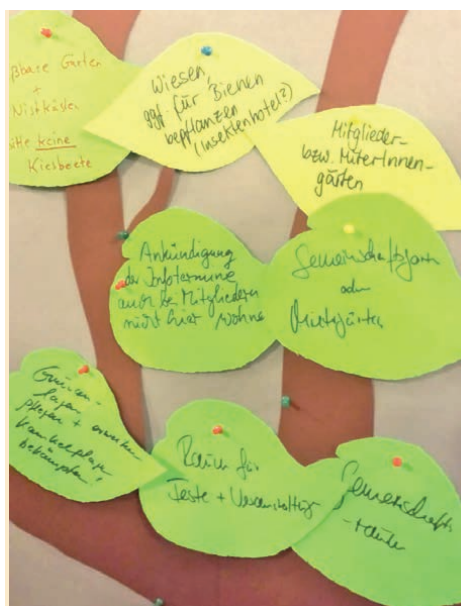 ßbare Gärten
+
Nistkästen
bitte keine
Kiesbeete
Wiesen,
ggf. für Bienen
bepflanzen
(Insektenhotel?)
Mitglieder-
bzw. MieterInnen-
gärten
Ankündigung
der Infotermine
auch bei Mitgliedern
nicht hier wohnen
Gemeinschaftsgarten
oder
Mietgärten
Grünan-
lagen
pflegen +
Kaninchenplage
bekämpfen!
Raum für
Feste + Veranstaltung
Gemeinschafts
-räume